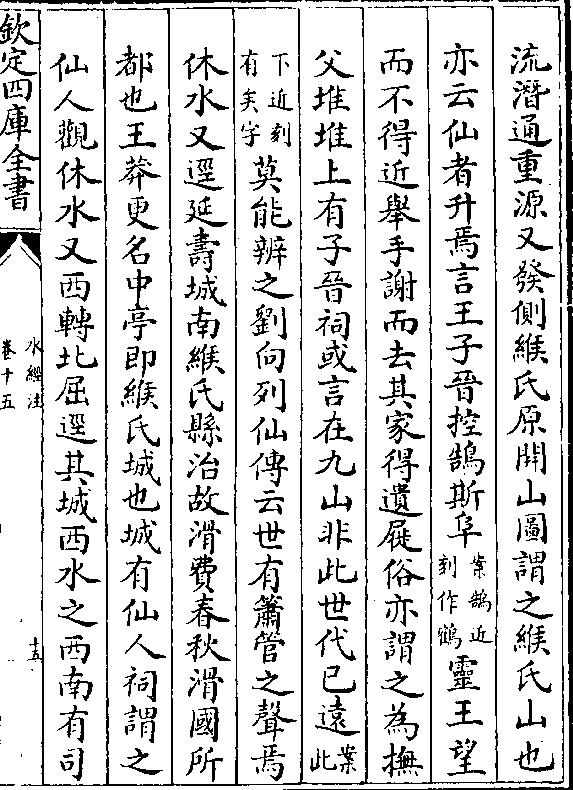 流潛通重源又發側緱氏原開山圖謂之緱氏山也
亦云仙者升焉言王子晉控鵠斯阜案鵠近刻作鶴靈王望
而不得近舉手謝而去其家得遺屣俗亦謂之為撫
父堆堆上有子晉祠或言在九山非此世代已遠案此
下近刻有矣字莫能辨之劉向列仙傳云世有簫管之聲焉
休水又逕延壽城南緱氏縣治故滑費春秋滑國所
都也王莽更名中亭即緱氏城也城有仙人祠謂之
仙人觀休水又西轉北屈逕其城西水之西南有司
欽定四庫全書
水經注
卷十五
十五